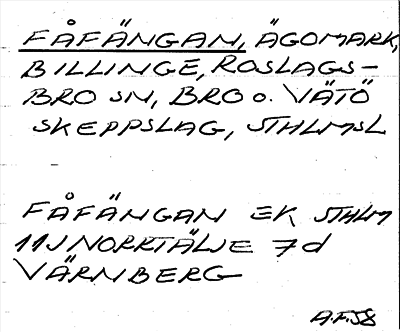 FÅFÄNGAN, ÄGOMARK,
BILLINGE, ROSLAGS-
BRO SN, BRO O. VÄTÖ
SKEPPSLAG, STHLMSL
FÅFÄNGAN EK STHLM
11J NORRTÄLJE 7d
VÄRNBERG
A.F.58